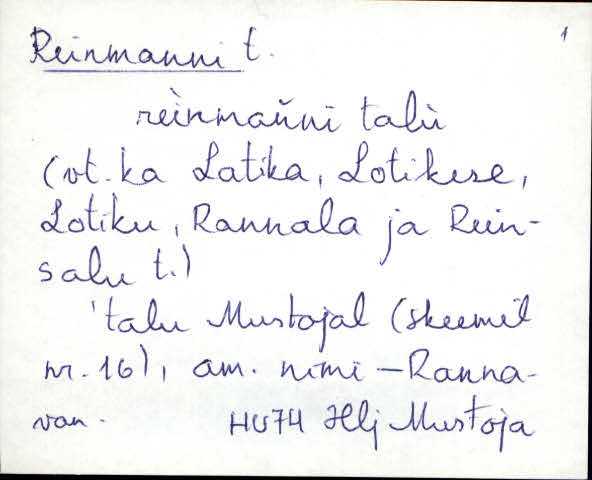 Reinmanni t. 1
rèinman̆ni talù
(vt. ka Latika, Lotikese,
Lotiku, Rannala ja Rein-
salu t.)
'talu Mustojal (skeemil
nr. 16), am. nimi – Ranna-
van. HU74 Hlj Mustoja